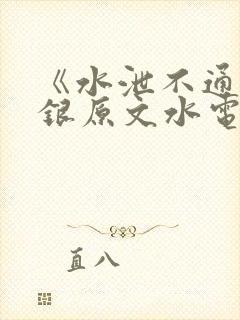 《水泄不通
銀原文水電
直八